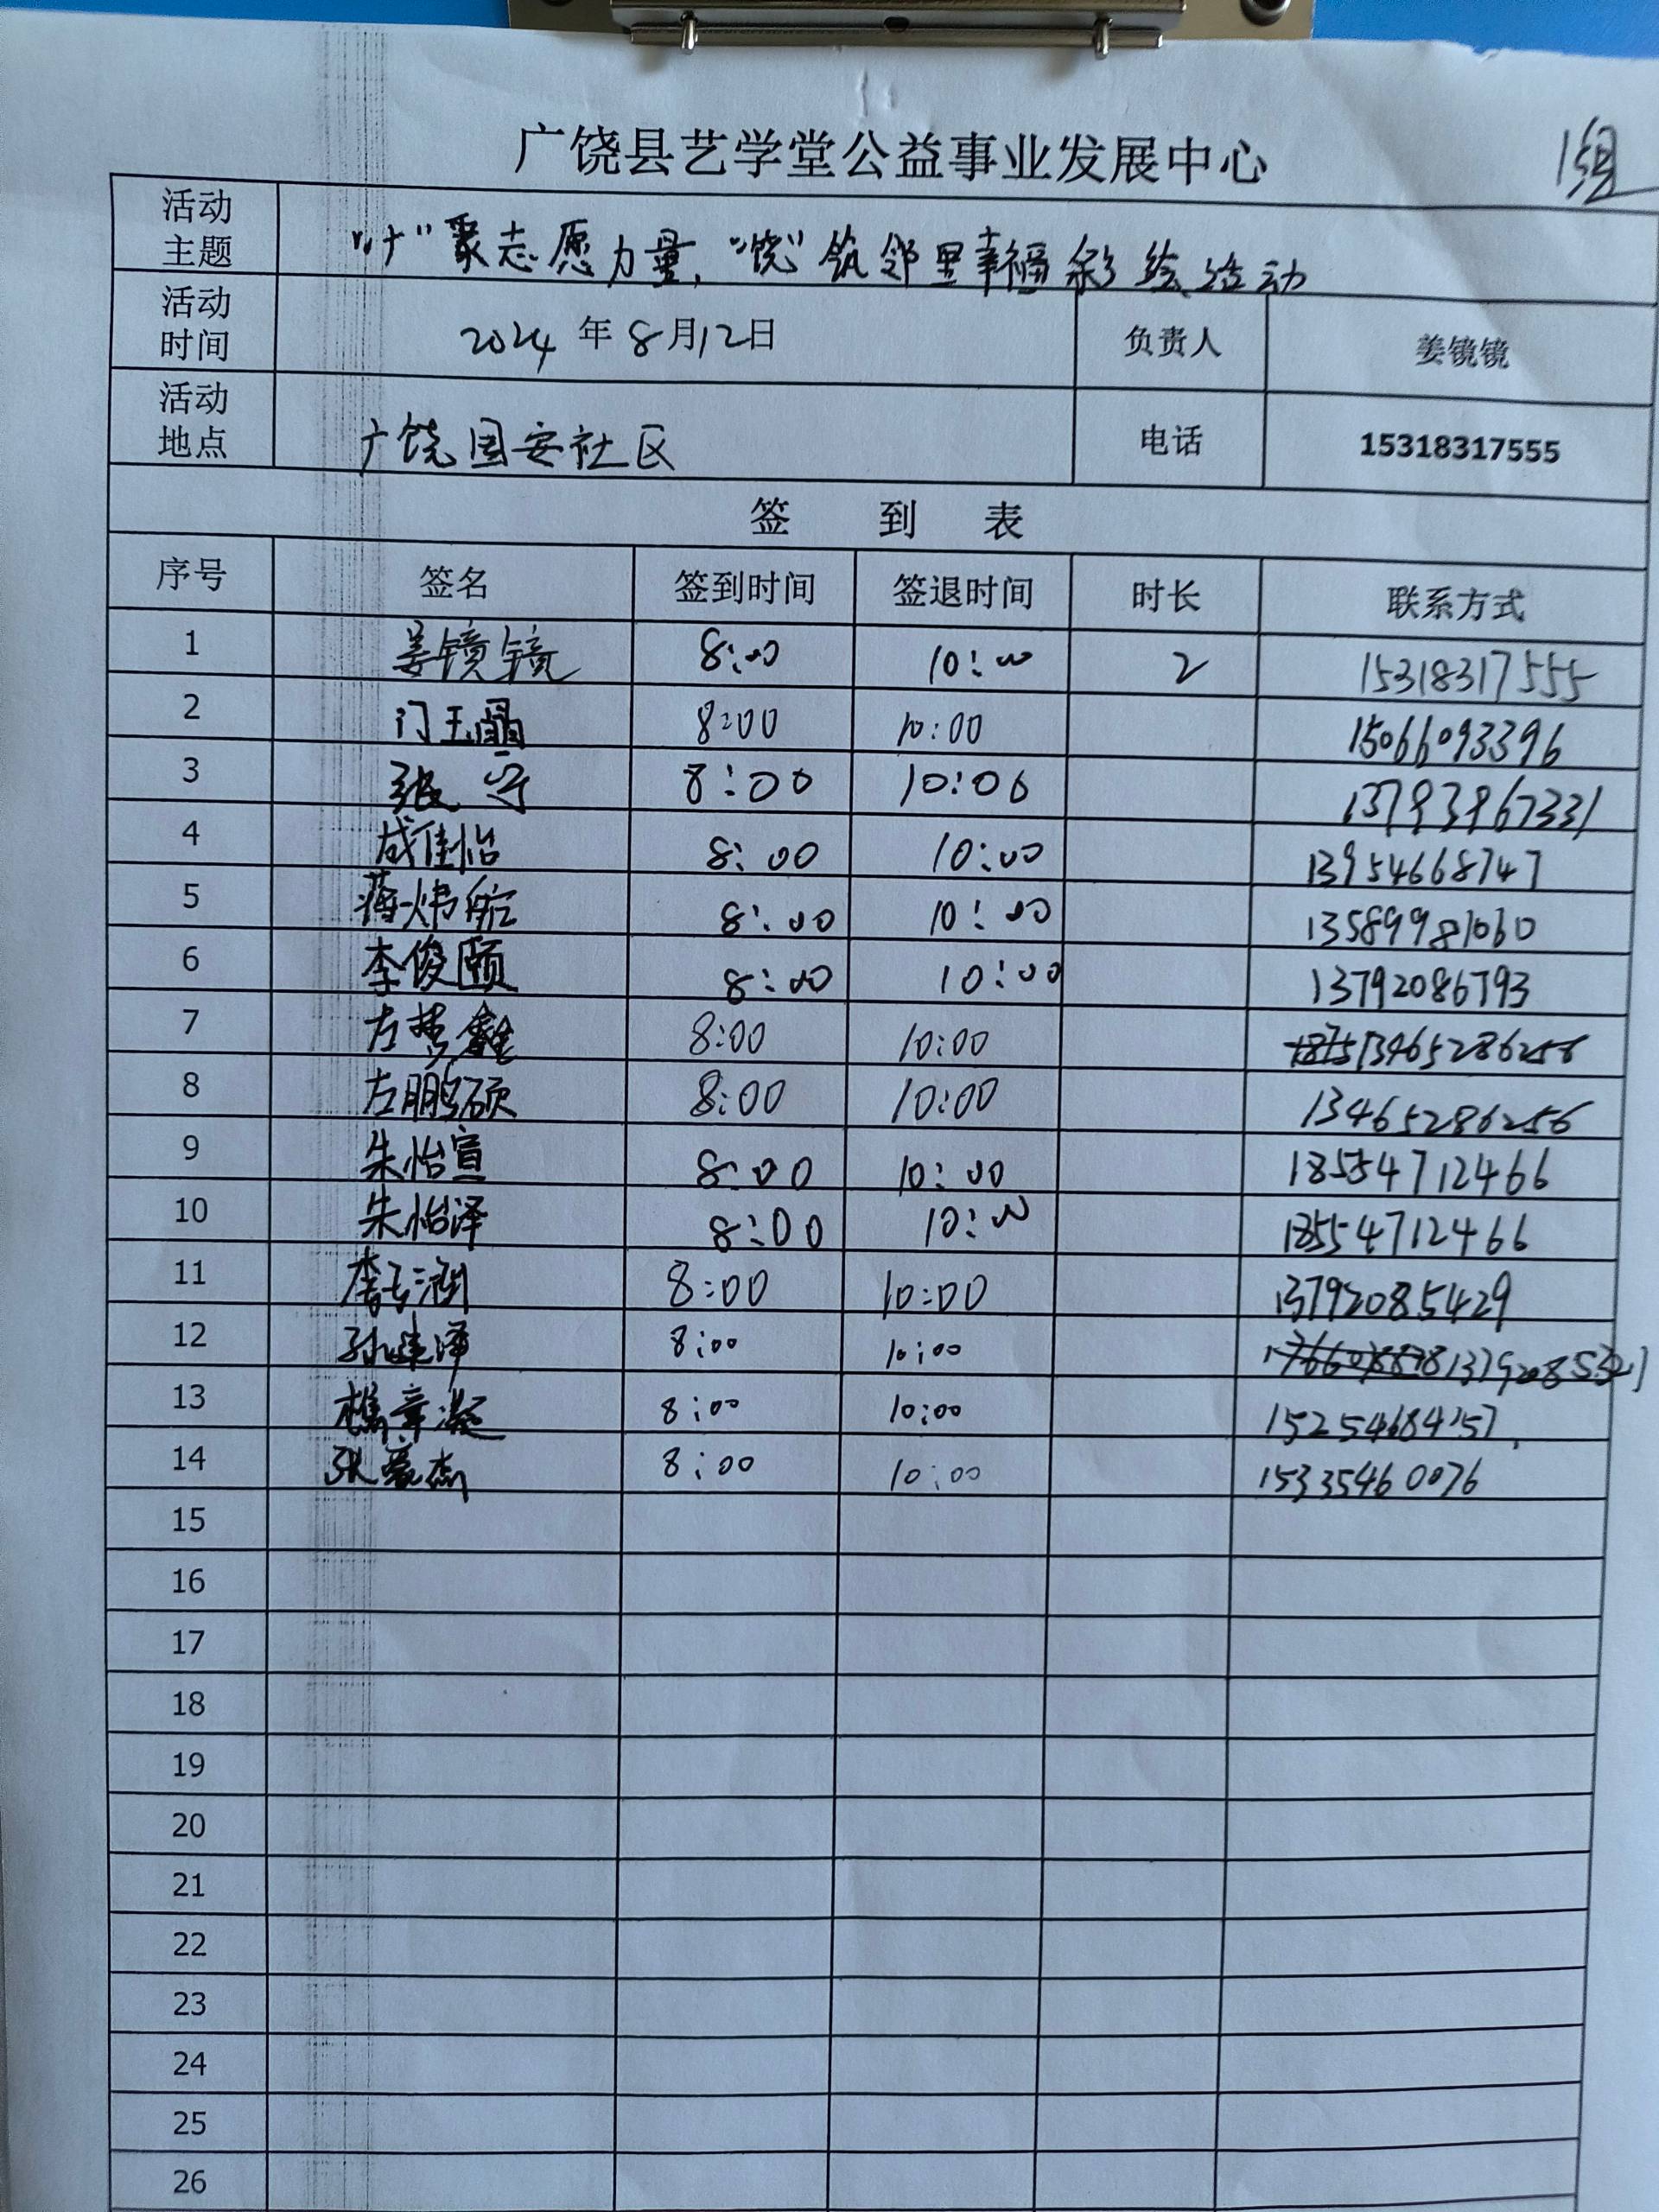 广饶县艺学堂公益事业发展中心
1组
活动主题 "广"聚志愿力量,"饶"筑邻里幸福彩绘活动
活动时间 2024年8月12日 负责人 姜镜镜
活动地点 广饶国安社区 电话 15318317555
签 到 表
序号 签名 签到时间 签退时间 时长 联系方式
1 姜镜镜 8:00 10:00 2 15318317555
2 门玉晶 8:00 10:00 15066093396
3 张宁 8:00 10:00 13793967331
4 成佳怡 8:00 10:00 13954668747
5 蒋炜航 8:00 10:00 13589981060
6 李俊颐 8:00 10:00 13792086793
7 左梦鑫 8:00 10:00 13465286256
8 左鹏硕 8:00 10:00 13465286256
9 朱怡宣 8:00 10:00 18554712466
10 朱怡泽 8:00 10:00 18554712466
11 李 润 8:00 10:00 13792085429
12 孙 泽 8:00 10:00
13 8:00 10:00
14 张豪杰 8:00 10:00 15335460076
15
16
17
18
19
20
21
22
23
24
25
26